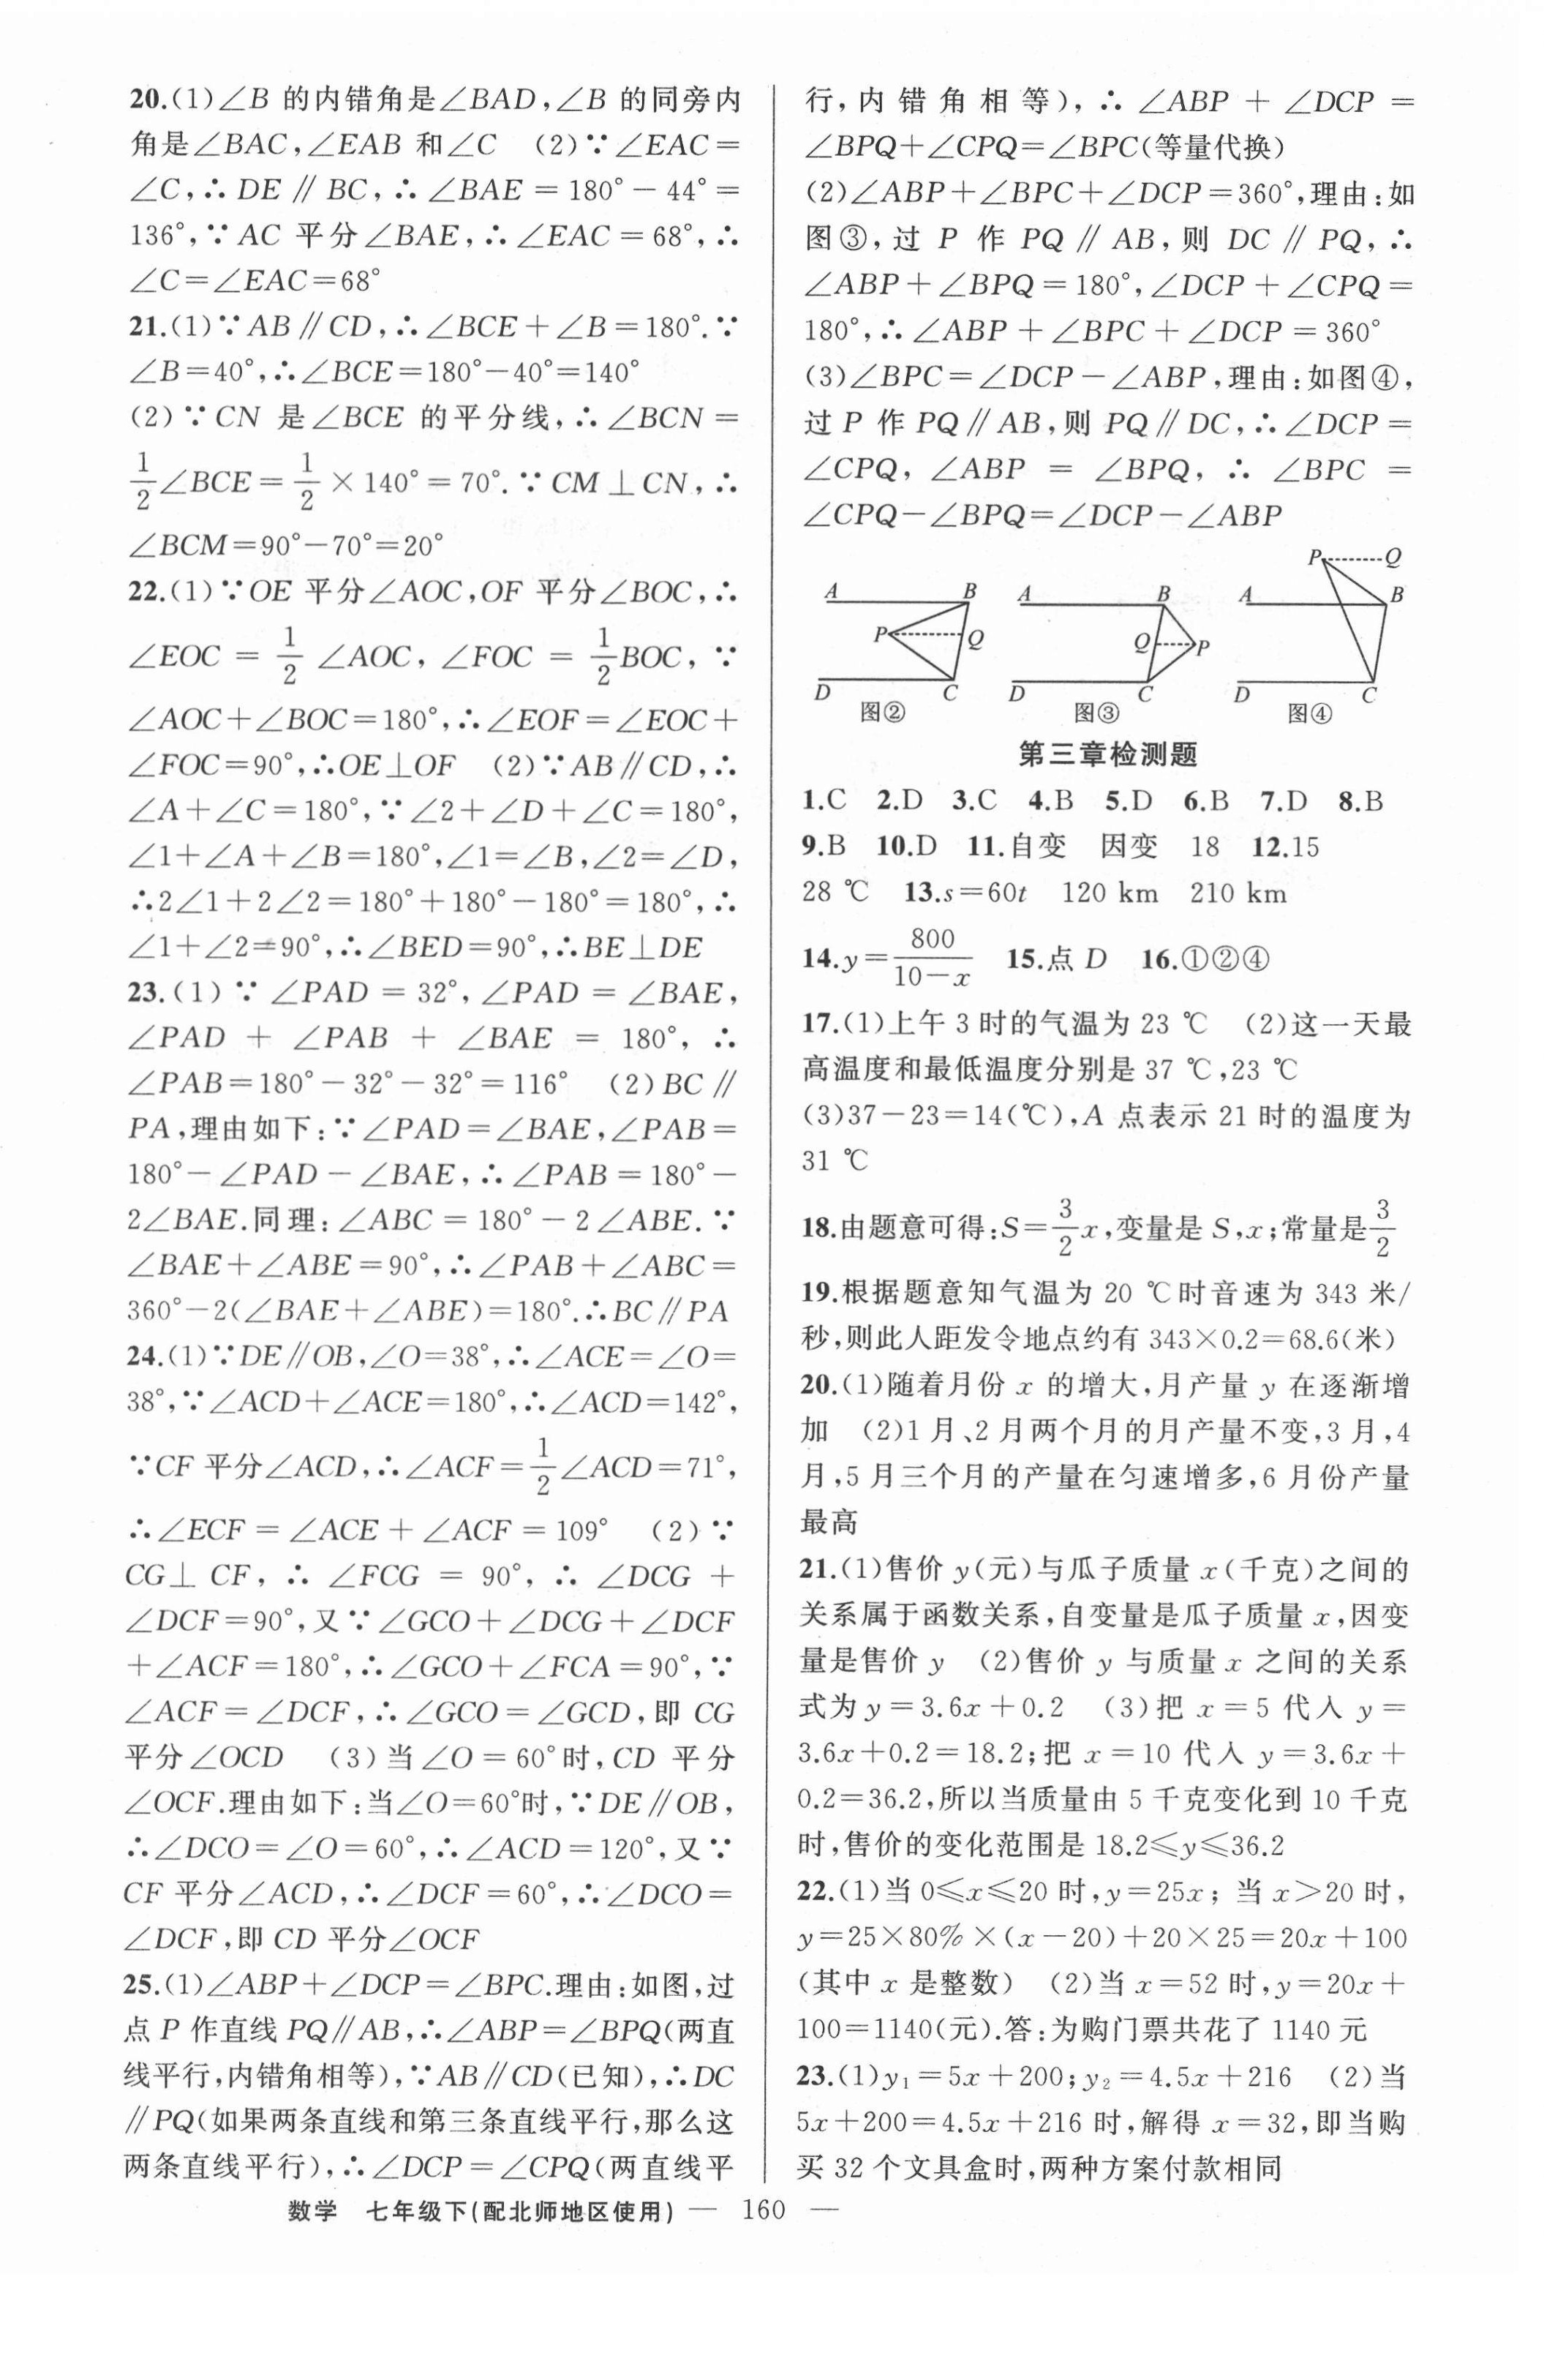 20.(1)∠B 的内错角是∠BAD,∠B 的同旁内
角是∠BAC,∠EAB 和∠C (2)∵∠EAC=
∠C,∴DE∥BC,∴∠BAE=180°-44°=
136°,∵AC 平分∠BAE,∴∠EAC=68°,∴
∠C=∠EAC=68°
21.(1)∵AB∥CD,∴∠BCE+∠B=180°.∵
∠B=40°,∴∠BCE=180°-40°=140°
(2)∵CN 是∠BCE 的平分线,∴∠BCN=
1/2∠BCE=1/2×140°=70°.∵CM⊥CN,∴
∠BCM=90°-70°=20°
22.(1)∵OE 平分∠AOC,OF 平分∠BOC,∴
∠EOC=1/2∠AOC,∠FOC=1/2BOC,∵
∠AOC+∠BOC=180°,∴∠EOF=∠EOC+
∠FOC=90°,∴OE⊥OF (2)∵AB∥CD,∴
∠A+∠C=180°,∵∠2+∠D+∠C=180°,
∠1+∠A+∠B=180°,∠1=∠B,∠2=∠D,
∴2∠1+2∠2=180°+180°-180°=180°,∴
∠1+∠2=90°,∴∠BED=90°,∴BE⊥DE
23.(1)∵∠PAD=32°,∠PAD=∠BAE,
∠PAD+∠PAB+∠BAE=180°,∴
∠PAB=180°-32°-32°=116° (2)BC∥
PA,理由如下:∵∠PAD=∠BAE,∠PAB=
180°-∠PAD-∠BAE,∴∠PAB=180°-
2∠BAE.同理:∠ABC=180°-2∠ABE.∵
∠BAE+∠ABE=90°,∴∠PAB+∠ABC=
360°-2(∠BAE+∠ABE)=180°.∴BC∥PA
24.(1)∵DE∥OB,∠O=38°,∴∠ACE=∠O=
38°,∵∠ACD+∠ACE=180°,∴∠ACD=142°,
∵CF 平分∠ACD,∴∠ACF=1/2∠ACD=71°,
∴∠ECF=∠ACE+∠ACF=109° (2)∵
CG⊥CF,∴∠FCG=90°,∴∠DCG+
∠DCF=90°,又∵∠GCO+∠DCG+∠DCF
+∠ACF=180°,∴∠GCO+∠FCA=90°,∵
∠ACF=∠DCF,∴∠GCO=∠GCD,即 CG
平分∠OCD (3)当∠O=60°时,CD 平分
∠OCF.理由如下:当∠O=60°时,∵DE∥OB,
∴∠DCO=∠O=60°,∴∠ACD=120°,又∵
CF 平分∠ACD,∴∠DCF=60°,∴∠DCO=
∠DCF,即 CD 平分∠OCF
25.(1)∠ABP+∠DCP=∠BPC.理由:如图,过
点 P 作直线 PQ∥AB,∴∠ABP=∠BPQ(两直
线平行,内错角相等),∵AB∥CD(已知),∴DC
∥PQ(如果两条直线和第三条直线平行,那么这
两条直线平行),∴∠DCP=∠CPQ(两直线平
行,内错角相等),∴∠ABP+∠DCP=
∠BPQ+∠CPQ=∠BPC(等量代换)
(2)∠ABP+∠BPC+∠DCP=360°,理由:如
图③,过 P 作 PQ∥AB,则 DC∥PQ,∴
∠ABP+∠BPQ=180°,∠DCP+∠CPQ=
180°,∴∠ABP+∠BPC+∠DCP=360°
(3)∠BPC=∠DCP-∠ABP,理由:如图④,
过 P 作 PQ∥AB,则 PQ∥DC,∴∠DCP=
∠CPQ,∠ABP=∠BPQ,∴∠BPC=
∠CPQ-∠BPQ=∠DCP-∠ABP
A B P Q D C 图②
A B Q P D C 图③
P Q A B D C 图④
第三章检测题
1.C 2.D 3.C 4.B 5.D 6.B 7.D 8.B
9.B 10.D 11.自变 因变 18 12.15
28 ℃ 13.s=60t 120 km 210 km
14.y=800/(10-x) 15.点 D 16.①②④
17.(1)上午 3 时的气温为 23 ℃ (2)这一天最
高温度和最低温度分别是 37 ℃,23 ℃
(3)37-23=14(℃),A 点表示 21 时的温度为
31 ℃
18.由题意可得:S=3/2x,变量是 S,x;常量是3/2
19.根据题意知气温为 20 ℃时音速为 343 米/
秒,则此人距发令地点约有 343×0.2=68.6(米)
20.(1)随着月份 x 的增大,月产量 y 在逐渐增
加 (2)1 月、2 月两个月的月产量不变,3 月,4
月,5 月三个月的产量在匀速增多,6 月份产量
最高
21.(1)售价 y(元)与瓜子质量 x(千克)之间的
关系属于函数关系,自变量是瓜子质量 x,因变
量是售价 y (2)售价 y 与质量 x 之间的关系
式为 y=3.6x+0.2 (3)把 x=5 代入 y=
3.6x+0.2=18.2;把 x=10 代入 y=3.6x+
0.2=36.2,所以当质量由 5 千克变化到 10 千克
时,售价的变化范围是 18.2≤y≤36.2
22.(1)当 0≤x≤20 时,y=25x;当 x>20 时,
y=25×80%×(x-20)+20×25=20x+100
(其中 x 是整数) (2)当 x=52 时,y=20x+
100=1140(元).答:为购门票共花了 1140 元
23.(1)y₁=5x+200;y₂=4.5x+216 (2)当
5x+200=4.5x+216 时,解得 x=32,即当购
买 32 个文具盒时,两种方案付款相同
数学 七年级下(配北师地区使用) — 160 —